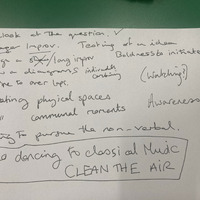 look at the question. ✓
Improv. Testing of an idea
long improv Boldness to initiate
diagrams (Watching?)
to over laps.
physical spaces Awareness
" communal moments
to pursue the non-verbal.
dancing to classical Music
CLEAN THE AIR